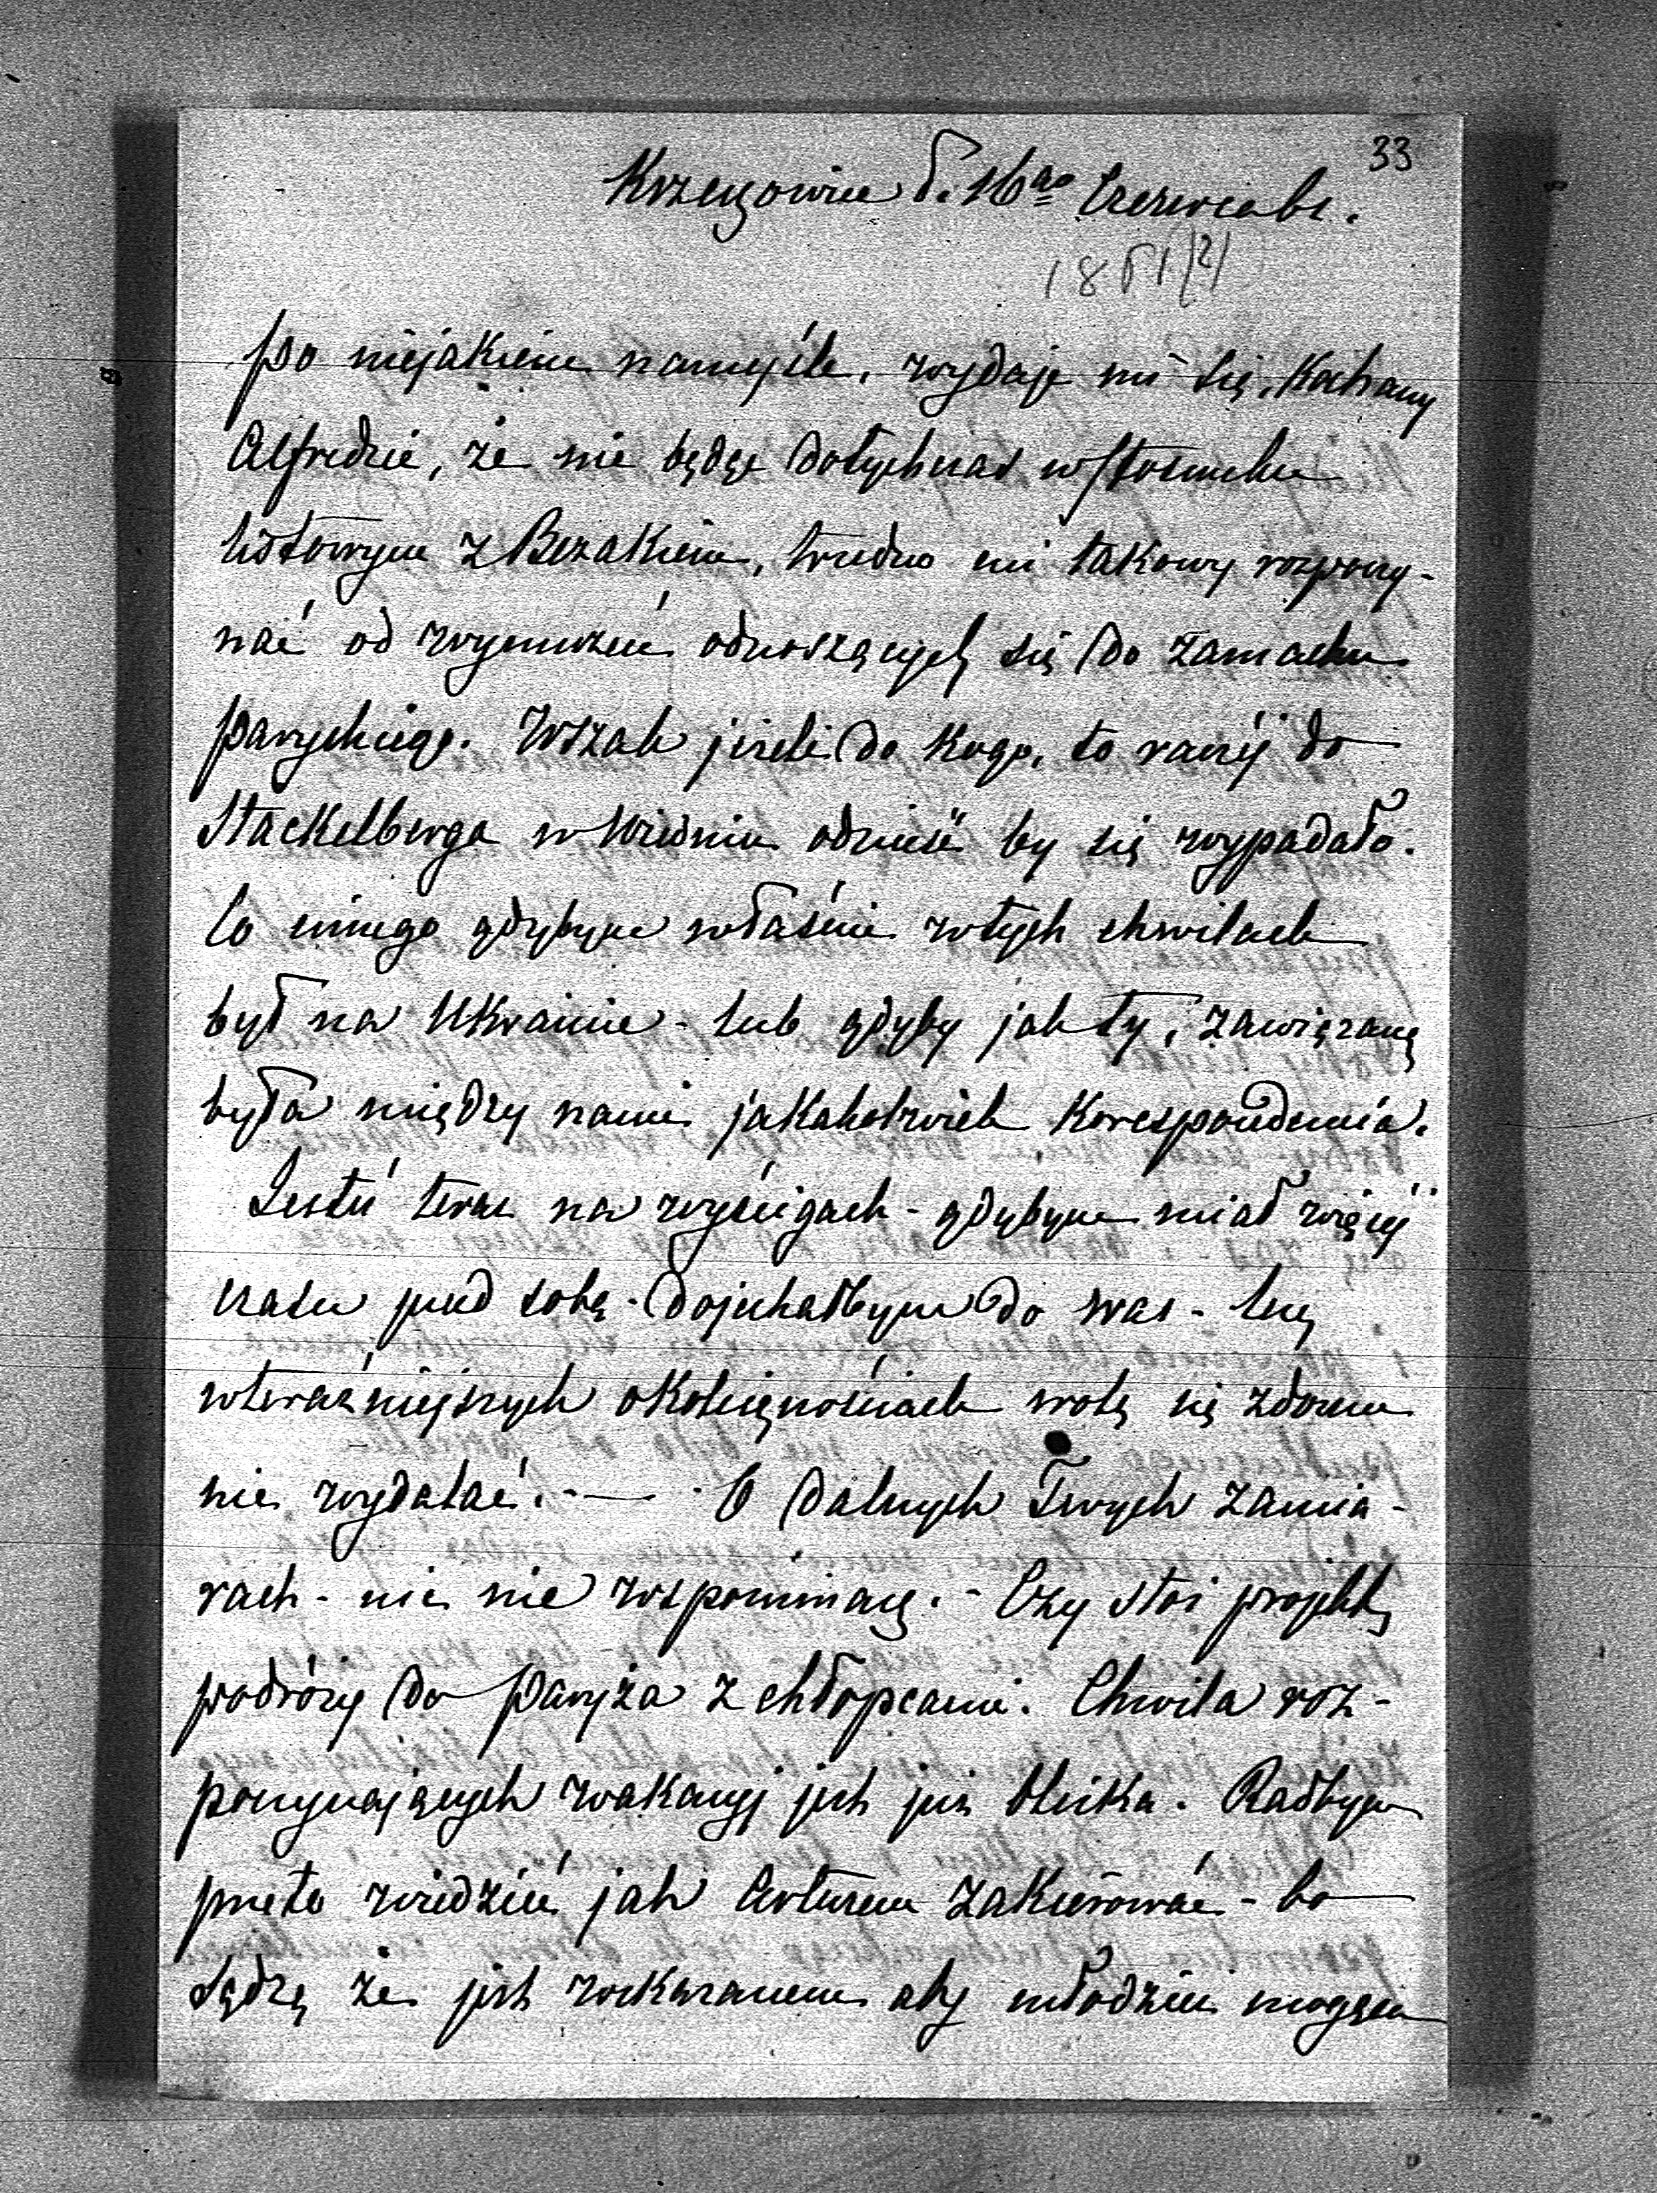 33
Krzeszowice d. 16go Czerwca br.
1861 /?/
Po niejakiem namyśle, wydaje mi się, Kochany
Alfredzie, że nie będąc dotychczas w stosunku
listowym z Bezakiem, trudno mi takowy rozpoczy-
nać od wynurzeń odnoszących się do zamachu
paryskiego. Wszak jeżeli do kogo, to raczéj do
Stackelberga w Wiedniu odnieść by się wypadało.
Co innego gdybym właśnie w tych chwilach
był na Ukrainie - lub gdyby jak ty, zawiązaną
była między nami jakakolwiek korespondencia.
Jesteś teraz na wyścigach - gdybym miał więcéj
czasu przed sobą - dojechałbym do was - lecz
w teraźniejszych okolicznościach wolę się z domu
nie wydalać. — O dalszych Twych zamia-
rach - nic nie wspominasz. - Czy stoi projekt
podróży do Paryża z chłopcami. Chwila roz-
poczynających wakacyj jest już bliska. Radbym
przeto wiedzieć jak Arturem zakierować - bo
sądzę że jest wskazanem aby młodzież mogąca